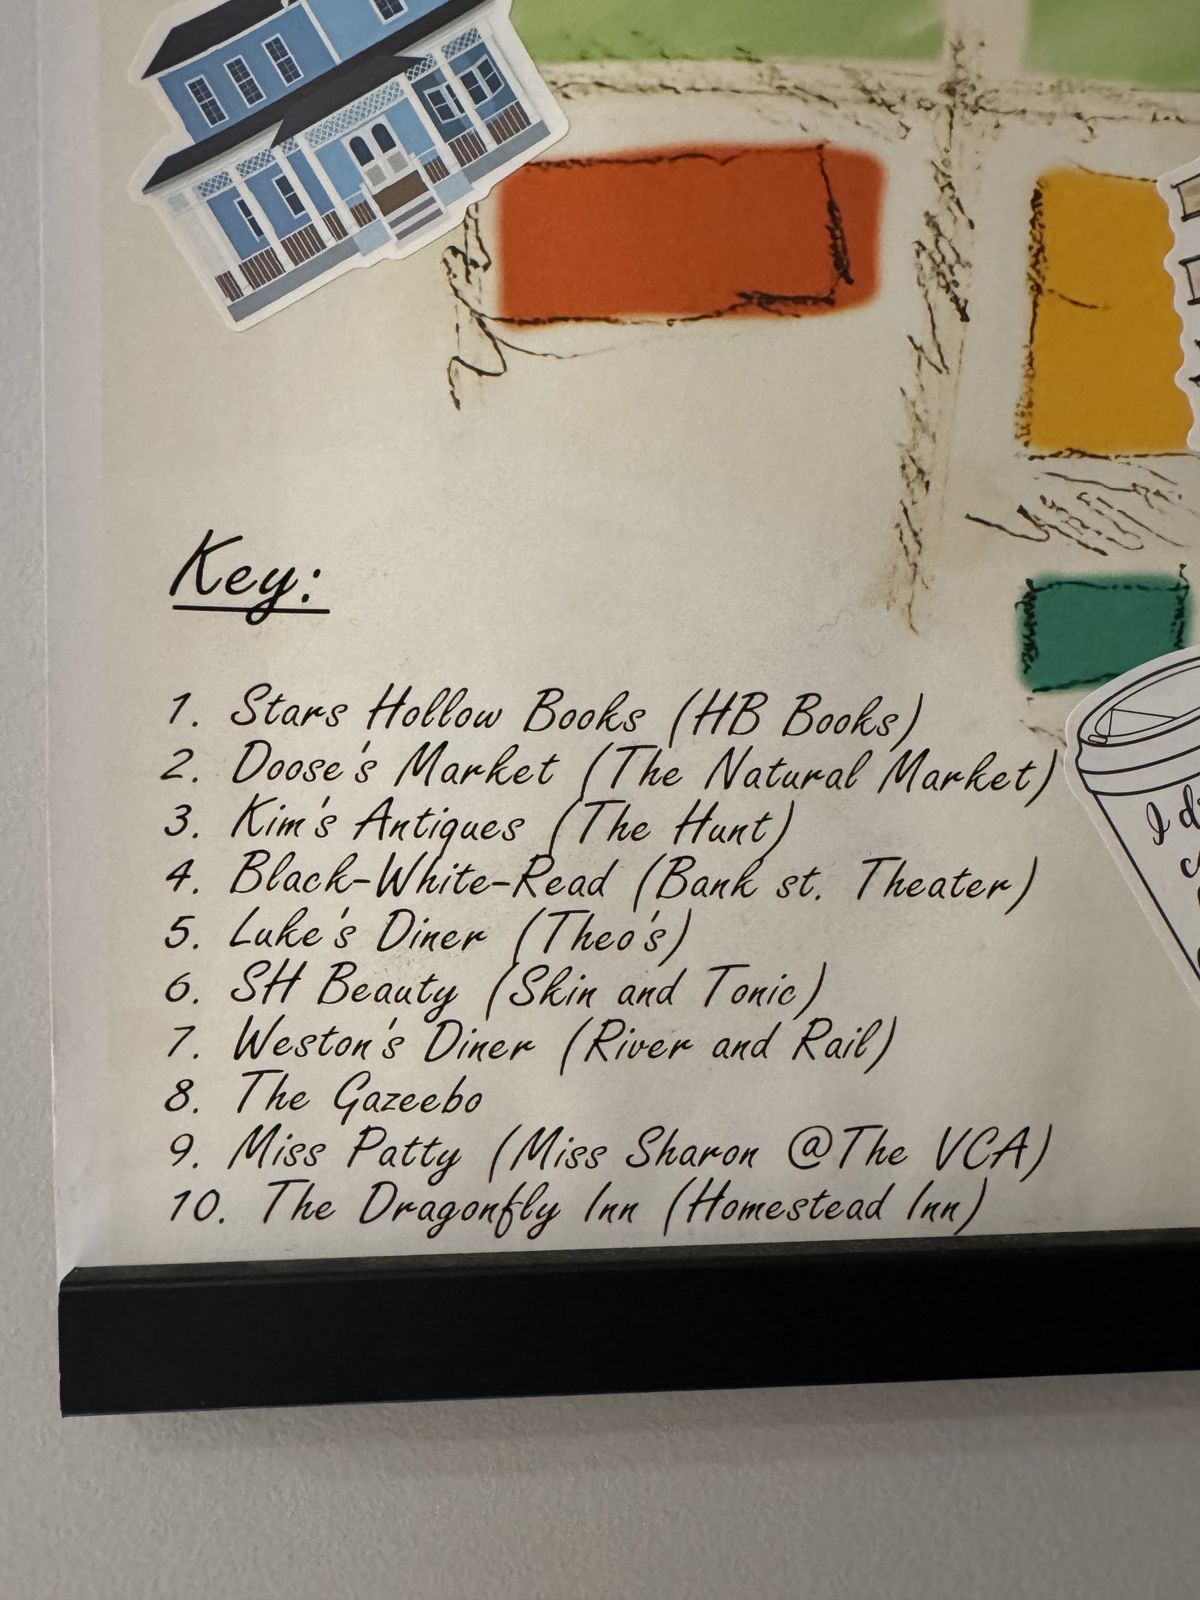 Key:
1. Stars Hollow Books (HB Books)
2. Doose's Market (The Natural Market)
3. Kim's Antiques (The Hunt)
4. Black-White-Read (Bank st. Theater)
5. Luke's Diner (Theo's)
6. SH Beauty (Skin and Tonic)
7. Weston's Diner (River and Rail)
8. The Gazeebo
9. Miss Patty (Miss Sharon @The VCA)
10. The Dragonfly Inn (Homestead Inn)
I